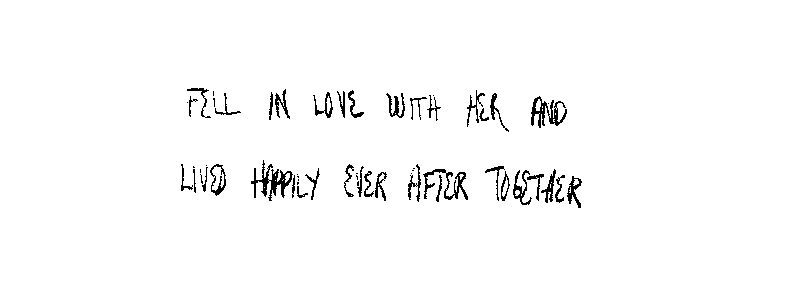 FELL IN LOVE WITH HER AND
LIVED HAPPILY EVER AFTER TOGETHER